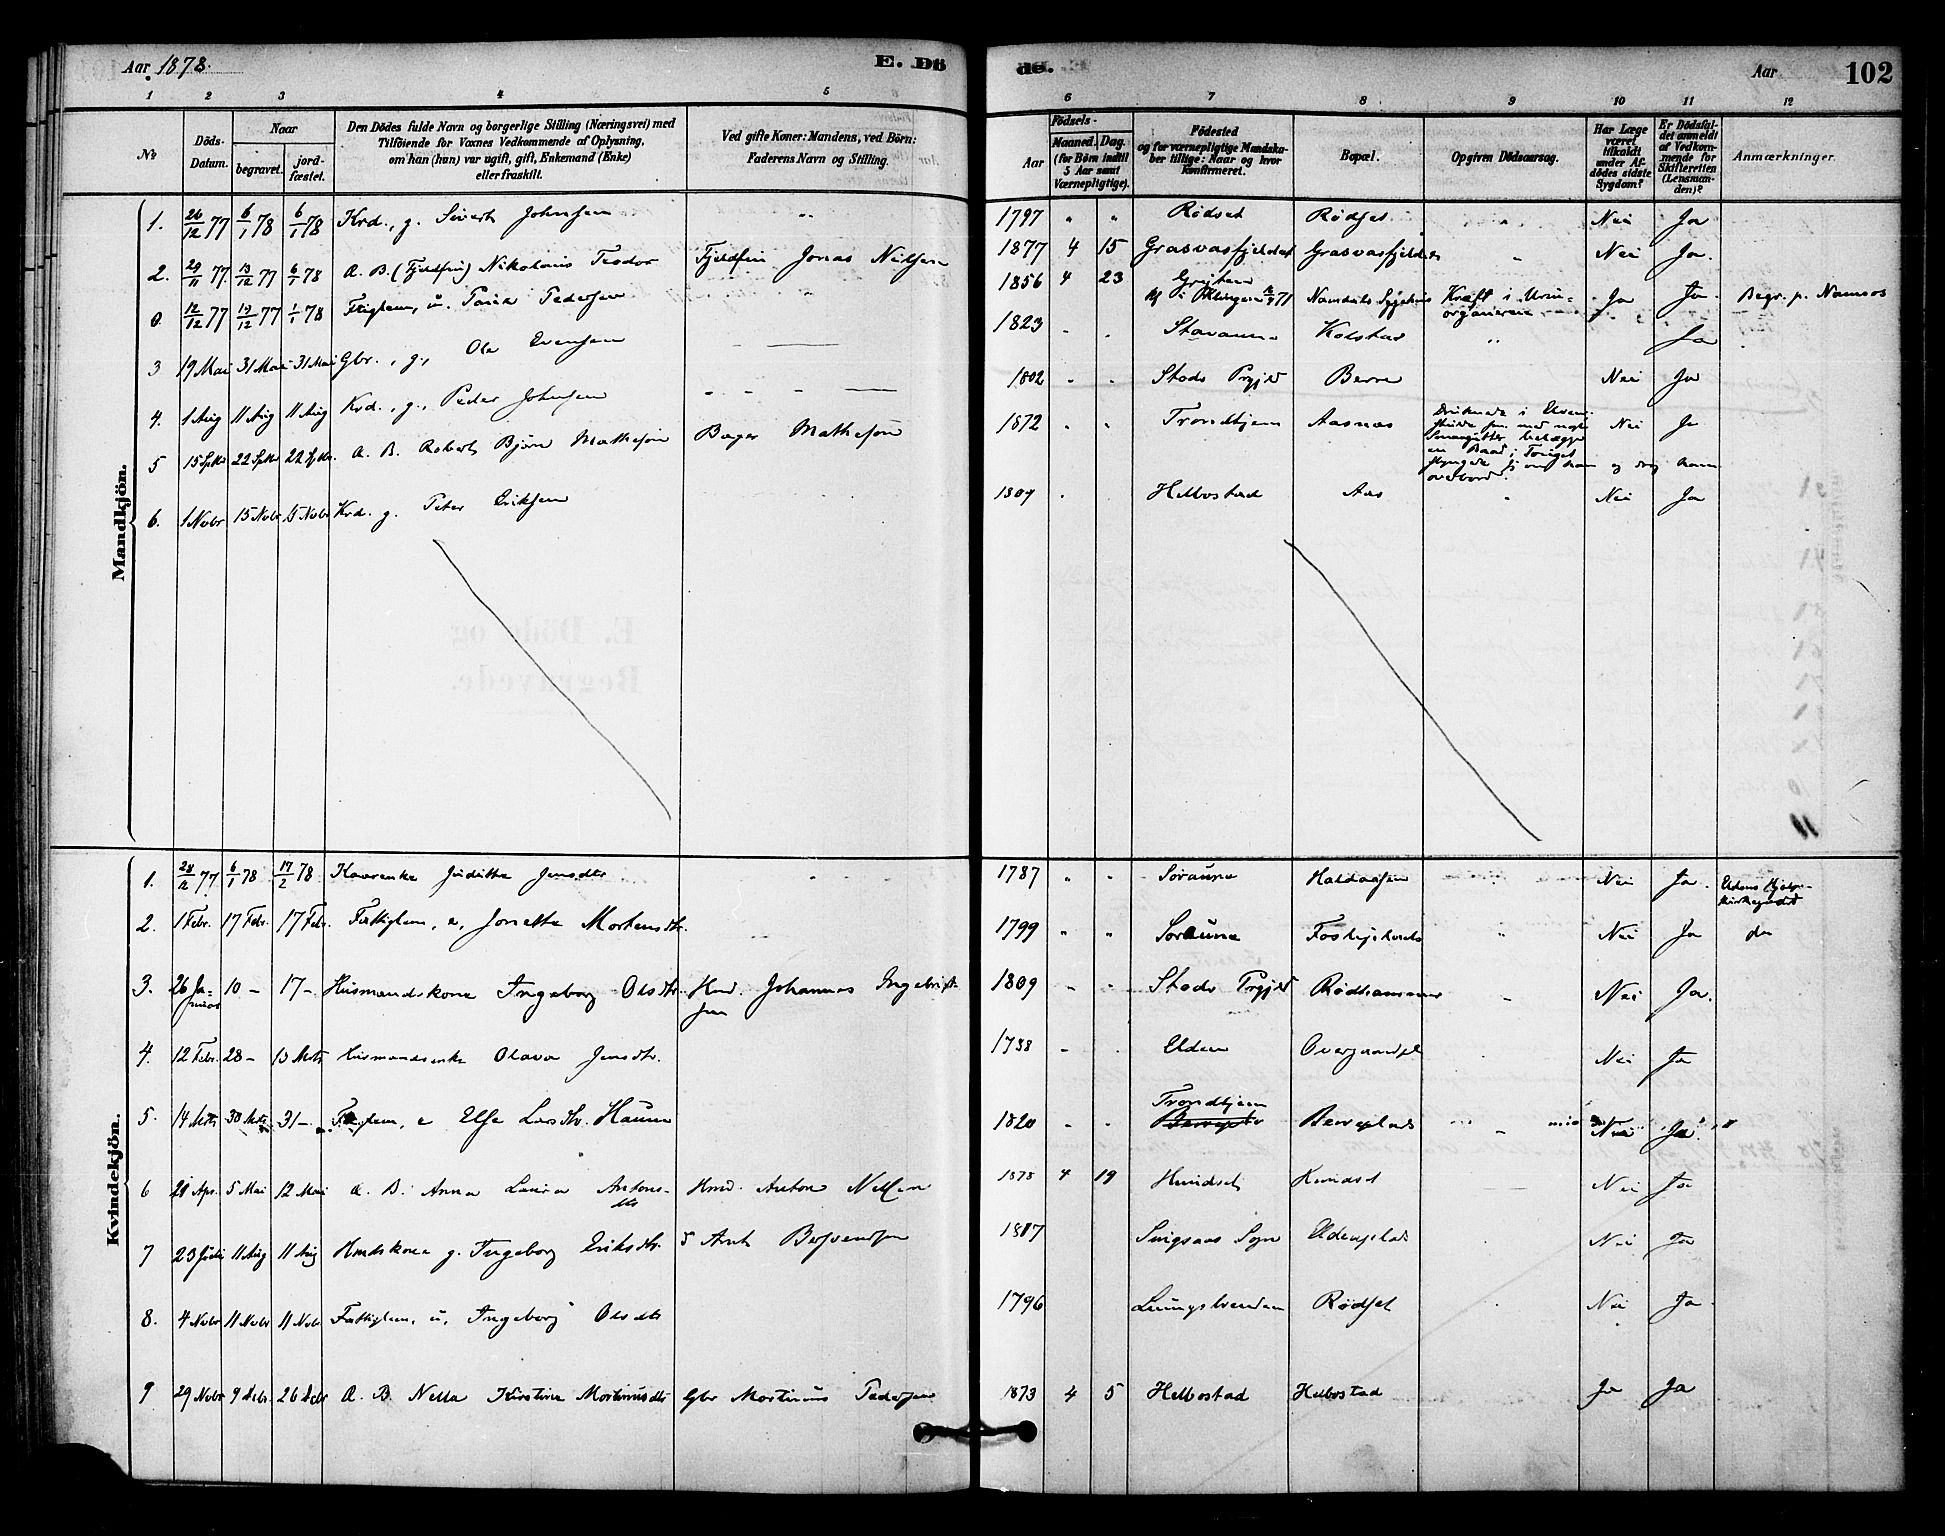 Aar 1878.
E. Dö
de.
Aar
102
1 2 3 4 5 6 7 8 9 10 11 12
No
Döds-Datum.
Naar
begravet.
jord-fæstet.
Den Dödes fulde Navn og borgerlige Stilling (Næringsvei) med
Tilföiende for Voxnes Vedkommende af Oplysning,
om han (hun) var ugift, gift, Enkemand (Enke)
eller fraskilt.
Ved gifte Koner: Mandens, ved Börn:
Faderens Navn og Stilling.
Födsels-
Aar
Maaned.
Dag.
(for Börn indtil
5 Aar samt
Værnepligtige).
Födested
og for værnepligtige Mandska-
ber tillige: Naar og hvor
konfirmeret.
Bopæl.
Opgiven Dödsaarsag.
Har Læge
været
tilkaldt
under Af-
dödes sidste
Sygdom?
Er Dödsfal-
det anmeldt
af Vedkom-
mende for
Skifteretten
(Lensman-
den)?
Anmærkninger.
Mandkjön.
1. 26/12 77 6/1 78 6/1 78 Krd., g. Sivert Johnsen " 1797 " " Rödset Rödset " Nei Ja
2. 29/11 77. 13/12 77 6/1 78 A. B. (Fjeldfin) Nikolaus Teodor Fjeldfin Jonas Nilsen 1877 4 15 Grasvasfjeldet Grasvasfjeldet " Nei Ja.
0. 12/12 77 19/12 77 1/1 78 u. Pedersen 1856 4 23 Namdals Sygehus Kræft i Urin-
organerne Ja Ja Begr. p. Namsos
3 19 Mai 31 Mai 31 Mai Gbr., g., Ole Evensen 1823 Kolstad " Ja
4. 1 Aug 11 Aug 11 Aug Krd., g., Peder Johnsen 1802 " " Stods Prgjld Berre Nei Ja
5 15 Sptbr 22 Sptbr 22 Sptbr A. B. Robert Bjørn Mathesen Bager Mathesen 1872 " " Trondhjem Aasnes Druknede i
en Baad
overbord. Nei Ja
6. 1 Novbr 15 Novbr 15 Novbr Krd. g. Peter Eriksen 1809 Helbostad Aas " Nei Ja
Kvindekjön.
1. 28/12 77 6/1 78 17/2 78 Kaarenke Juditha Jensdtr 1787 " " Soraune Haldaasen Nei Ja. Eldens Hjelpe-
kirkegaard
2. 1 Febr. 17 Febr. 17 Febr. Fattiglem, e, Jonetta Mortensdtr. 1799 " " Soraune " Nei Ja do
3. 26 Ja-
nuar 10 - 17 - Husmandskone Ingeborg Olsdtr. Hmd. Johannes Ingebrigt-
sen 1809 " " Stods Prgjld Nei Ja.
4. 12 Febr. 28 - 13 Mrts Husmandsenke Olava Jensdtr. Elden Nei Ja
5. 14 Mrts 30 Mrts 31 - e Else Larsdtr. Haunn 1820 " . Trondhjem Berreplads Nei Ja.
6 21 Apr. 5 Mai 12 Mai A. B. Anna Laura Antons-
dtr Hmd. Anton Nilsen 1878 4 19 Hundset Hundset Nei Ja
7 23 Juli 11 Aug 11 Aug Hmdskone g. Ingeborg Eriksdtr. Arnt 1817 Sogn Eldenplads Nei Ja
8. 4 Novbr 11 Novbr 11 Novbr Fattiglem, u, Ingeborg Olsdtr 1796 Rödset Nei Ja
9 29 Novbr 9 Debr. 26 Debr A. B. Nella Kirstine Martinusdtr Gbr Martinus Pedersen 1873 4 5 Helbostad Helbostad Ja Ja